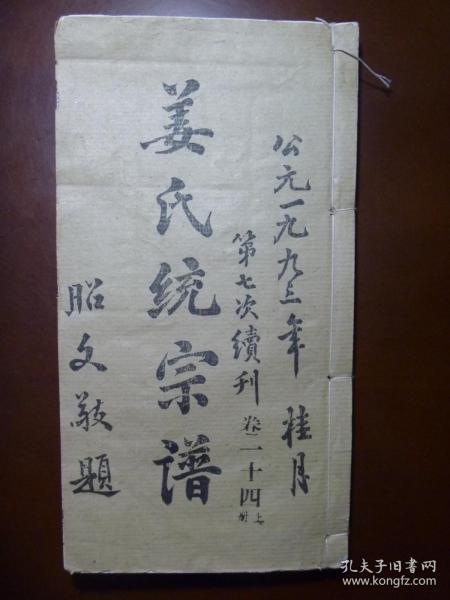 公元一九九三年 桂月
第七次續刊 卷二十四上册
姜氏统宗譜
昭文敬題
孔夫子旧书网
www.kongfz.com